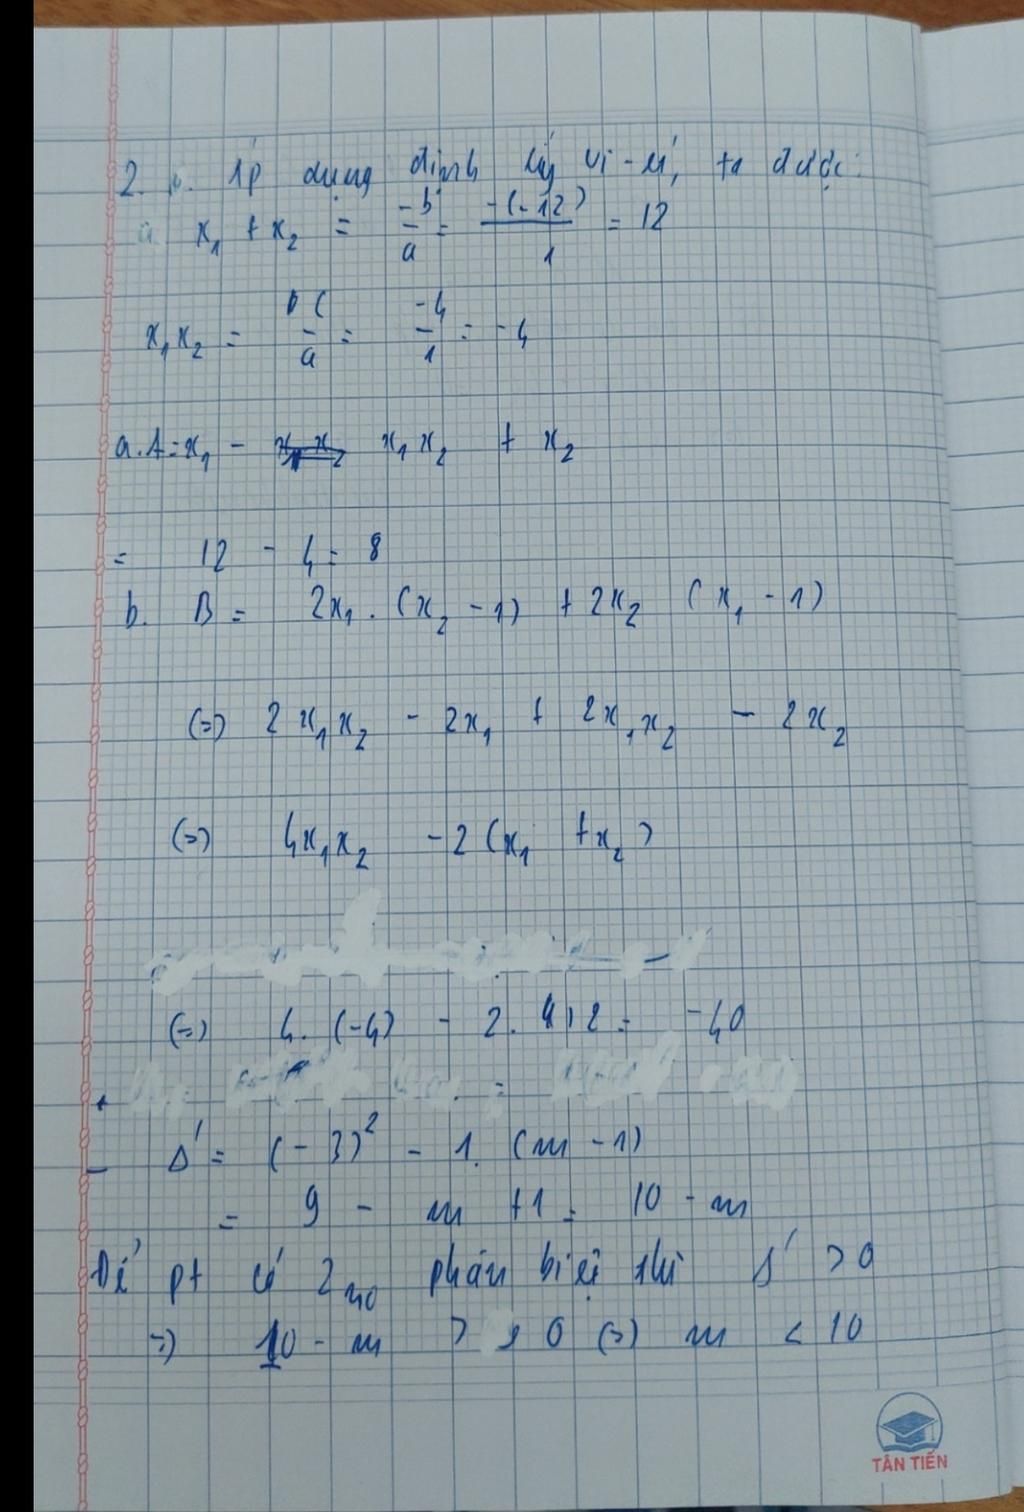 2. Áp dụng định lý Vi-ét, ta được:
x₁ + x₂ = -b/a = -(-12)/1 = 12
x₁x₂ = c/a = -4/1 = -4
a. A = x₁ - x₁x₂ + x₂
= 12 - 4 = 8
b. B = 2x₁. (x₂ - 1) + 2x₂ (x₁ - 1)
(=) 2x₁x₂ - 2x₁ + 2x₁x₂ - 2x₂
(=) 4x₁x₂ - 2(x₁ + x₂)
(=) 4. (-4) - 2. 12 = -40
- Δ' = (-3)² - 1. (m - 1)
= 9 - m + 1 = 10 - m
Để pt có 2 no phân biệt thì Δ' > 0
=) 10 - m > 0 (=) m < 10
TÂN TIẾN